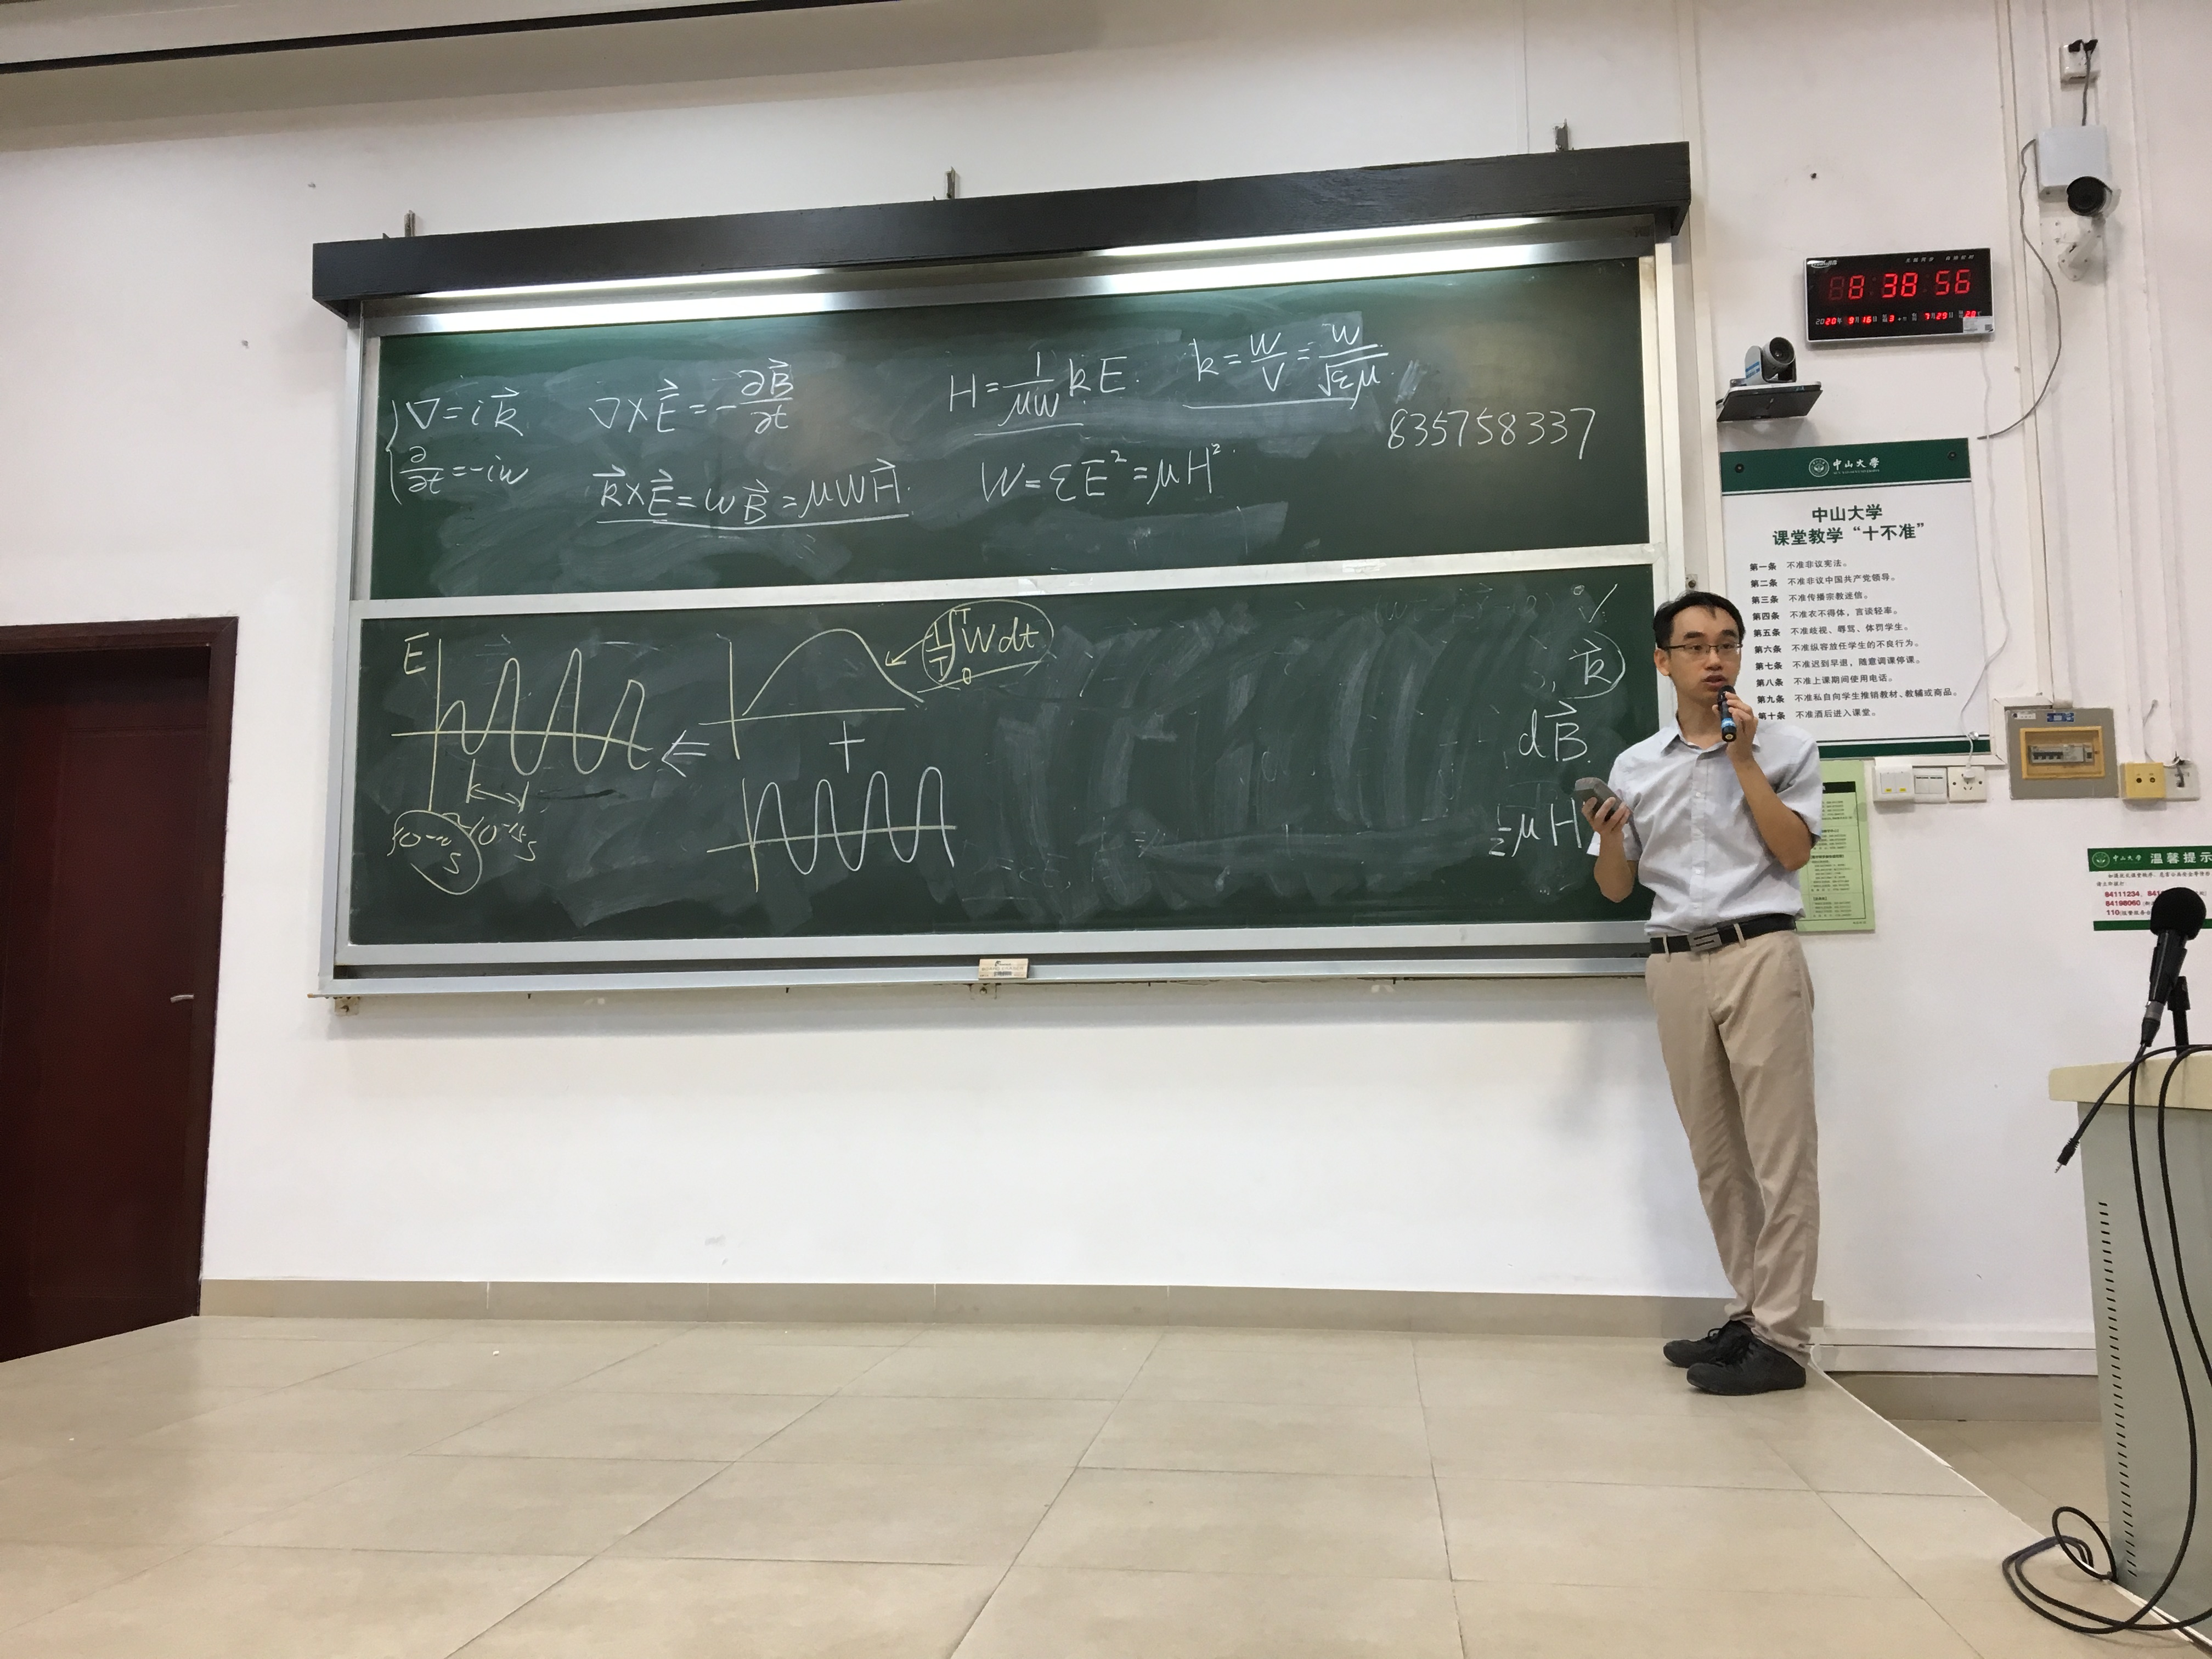 ∇=ik⃗
∂/∂t=-iw
∇×E⃗=-∂B⃗/∂t
k⃗×E⃗=wB⃗=μWH⃗.
H=1/μw kE.
W=εE²=μH².
k=w/v=w/√εμ.
835758337
E
10⁻¹⁵s
1/T∫₀ᵀWdt
+
k⃗
dB⃗.
½μH
8:38:56
2020年 9月 16日 7月29日
中山大學
中山大学
课堂教学“十不准”
第一条 不准非议宪法。
第二条 不准非议中国共产党领导。
第三条 不准传播宗教迷信。
第四条 不准衣不得体，言谈轻率。
第五条 不准歧视、辱骂、体罚学生。
第六条 不准纵容放任学生的不良行为。
第七条 不准迟到早退，随意调课停课。
第八条 不准上课期间使用电话。
第九条 不准私自向学生推销教材、教辅或商品。
第十条 不准酒后进入课堂。
中山大學 温馨提示
84111234，
84198060
110